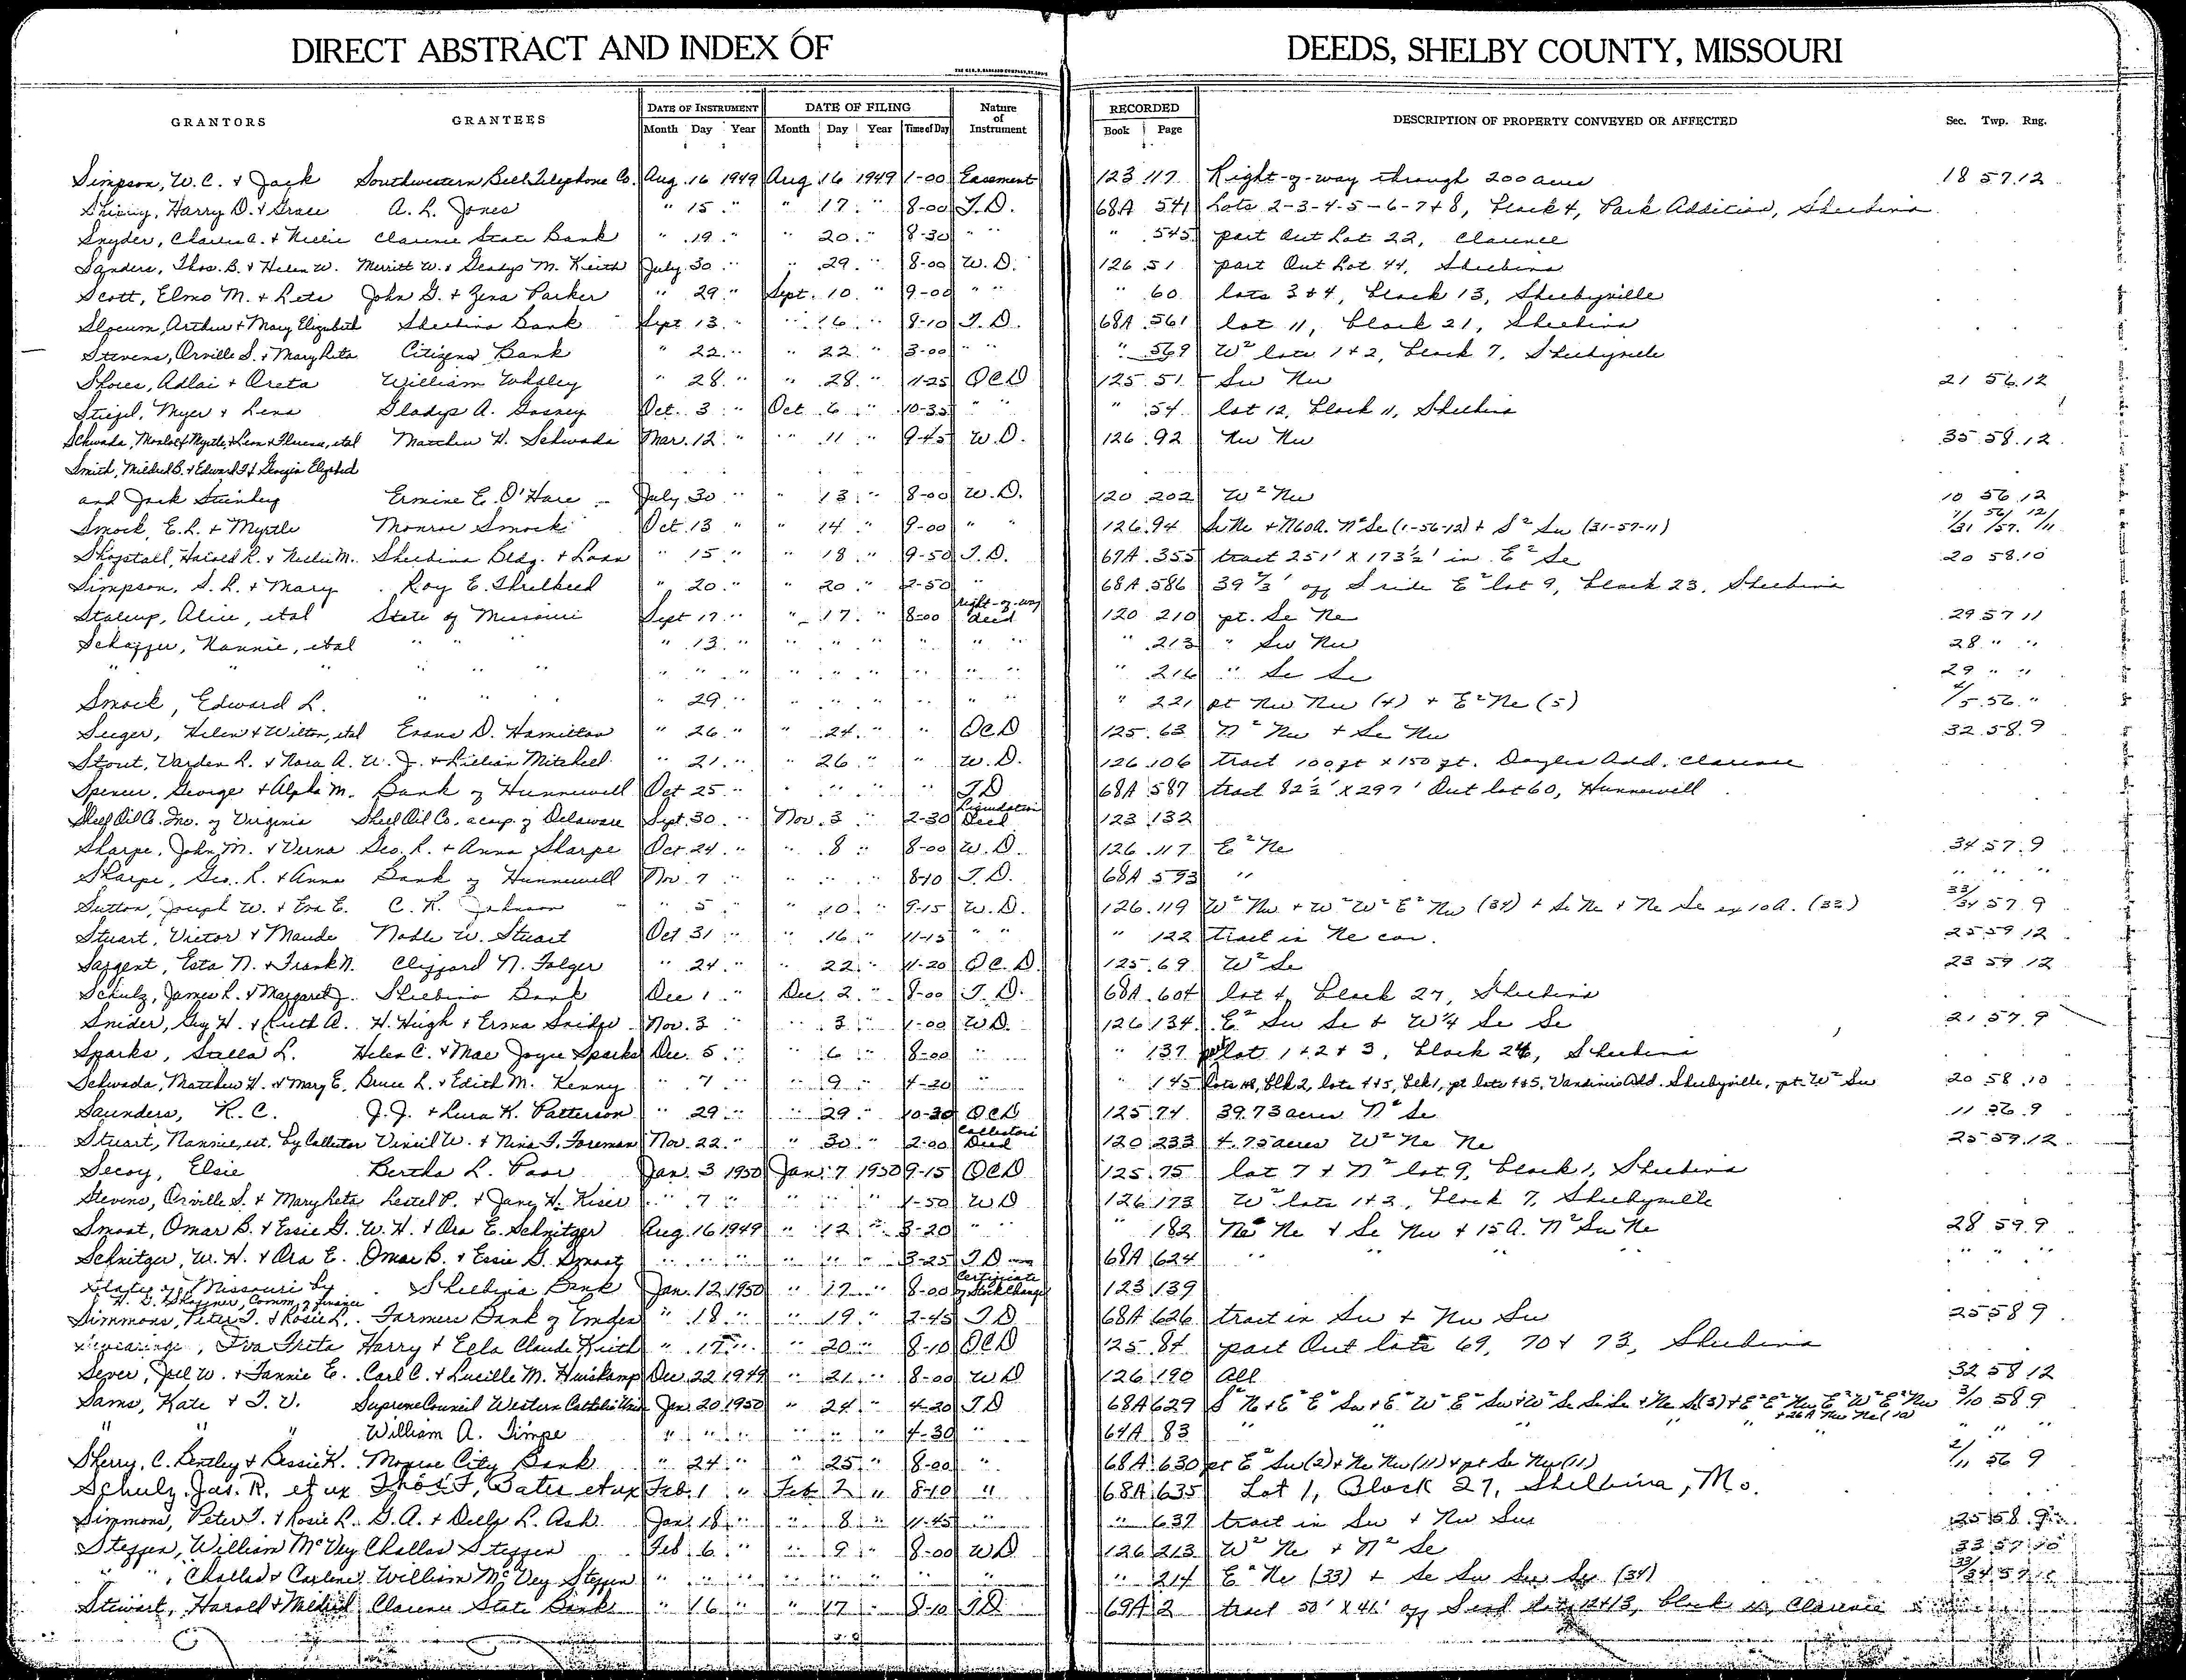 DIRECT ABSTRACT AND INDEX OF DEEDS, SHELBY COUNTY, MISSOURI
GRANTORS GRANTEES DATE OF INSTRUMENT DATE OF FILING Nature of Instrument RECORDED DESCRIPTION OF PROPERTY CONVEYED OR AFFECTED Sec. Twp. Rng.
Month Day Year Month Day Year Time of Day Book Page
Simpson, W. C. & Jack Southwestern Bell Telephone Co. Aug. 16 1949 Aug 16 1949 1-00 Easement 123 117 Right-of-way through 200 acres 18 57 12
Harry D. & Grace A. L. Jones " 15 " " 17 " 8-00 T.D. 68A 541 Lots 2-3-4-5-6-7+8, block 4, Park Addition, Shelbina
Snyder, Charles A. & Nellie Clarence State Bank " 19 " " 20 " 8-30 " " " 545 part Out Lot 22, Clarence
Sanders, Thos. B. & Helen W. Merritt W. & Gladys M. Keith July 30 " " 29 " 8-00 W.D. 126 51 part Out Lot 44, Shelbina
Scott, Elmo M. & Leta John G. & Zena Parker " 29 " Sept. 10 " 9-00 " " " 60 lots 3 & 4, block 13, Shelbyville
Slocum, Arthur & Mary Elizabeth Shelbina Bank Sept 13 " " 16 " 8-10 T.D. 68A 561 lot 11, block 21, Shelbina
Stevens, Orville S. & Mary Leta Citizens Bank " 22 " " 22 " 3-00 " " " 569 W² lots 1 & 2, block 7, Shelbyville
Shores, Adlai & Oreta William " 28 " " 28 " 11-25 QCD 125 51 Sw Nw 21 56 12
Myer & Lena Gladys A. Gosney Oct. 3 " Oct 6 " 10-35 " " " 54 lot 12, block 11, Shelbina
Schwada, Myrtle, & Leon & Florence, etal Matthew H. Schwada Mar. 12 " " 11 " 9-45 W.D. 126 92 Nw Nw 35 58 12
Smith, Mildred B. & Edward F. & Georgia Elizabeth
and Jack Steinberg Ermine E. O'Hare July 30 " " 13 " 8-00 W.D. 120 202 W² Nw 10 56 12
Smock, E. L. & Myrtle Monroe Smock Oct. 13 " " 14 " 9-00 " " 126 94 Se Ne + N60A. N²Se (1-56-12) + S² Sw (31-57-11) 1/31 56/57 12/11
Harold R. & Nellie M. Shelbina Bldg. & Loan " 15 " " 18 " 9-50 T.D. 67A 355 tract 251' x 173½' in E² Se 20 58 10
Simpson, S. L. & Mary Roy E. Threlkeld " 20 " " 20 " 2-50 " 68A 586 39⅔' off S side E² lot 9, block 23, Shelbina
Stalcup, Alice, etal State of Missouri Sept 17 " " 17 " 8-00 right-of-way deed 120 210 pt. Se Ne 29 57 11
Schaffer, Nannie, etal " " " " 13 " " " " " " " " 213 " Sw Nw 28 " "
" " " " " " " " " " " " " " " " 216 " Se Se 29 " "
Smock, Edward L. " " " " 29 " " " " " " " " 221 pt Nw Nw (4) + E² Ne (5) 4/5 56 "
Seeger, Helen & Wilton, etal Evans D. Hamilton " 26 " " 24 " " QCD 125 63 N² Nw + Se Nw 32 58 9
Stout, Varden L. & Nora A. W. J. & Lillian Mitchell " 21 " " 26 " " W.D. 126 106 tract 100 ft x 150 ft. Add. Clarence
Spencer, George & Alpha M. Bank of Hunnewell Oct 25 " " " " " T.D 68A 587 tract 82½' x 297' Out lot 60, Hunnewell
Shell Oil Co. Inc. of Virginia Shell Oil Co. a corp. of Delaware Sept. 30 " Nov. 3 " 2-30 Liquidation Deed 123 132
Sharpe, John M. & Verna Geo. R. & Anna Sharpe Oct. 24 " " 8 " 8-00 W.D. 126 117 E² Ne 34 57 9
Sharpe, Geo. R. & Anna Bank of Hunnewell Nov. 7 " " " " 8-10 T.D. 68A 593 " " " "
Sutton, Joseph W. & Eva E. C. R. Johnson " 5 " " 10 " 9-15 W.D. 126 119 W² Nw + W² W² E² Nw (34) + Se Ne + Ne Se ex 10A. (33) 33/34 57 9
Stuart, Victor & Maude Noble W. Stuart Oct 31 " " 16 " 11-15 " " " 122 tract in Ne cor. 25 59 12
Sargent, Esta N. & Frank N. Clifford N. Folger " 24 " " 22 " 11-20 Q.C.D. 125 69 W² Se 23 59 12
Schulz, James R. & Margaret J. Shelbina Bank Dec 1 " Dec. 2 " 8-00 T.D. 68A 604 lot 1, block 27, Shelbina
Snider, Guy H. & Ruth A. H. Hugh & Erma Snider Nov. 3 " " 3 " 1-00 W.D. 126 134 E² Sw Se & W¼ Se Se 21 57 9
Sparks, Stella L. Helen C. & Mae Joyce Sparks Dec. 5 " " 6 " 8-00 " " 137 part lot 1 + 2 + 3, block 26, Shelbina
Schwada, Matthew H. & Mary E. Bruce L. & Edith M. Kenny " 7 " " 9 " 4-20 " " 145 blk 2, lots 4+5, blk 1, pt lots 4+5, Add. Shelbyville, pt. W² Sw 20 58 10
Saunders, R. C. J. J. & Lura K. Patterson " 29 " " 29 " 10-30 QCD 125 74 39.73 acres N² Se 11 56 9
Stuart, Nannie, est. by Collector Virgil W. & Nina F. Foreman Nov. 22 " " 30 " 2-00 Collectors Deed 120 233 4.75 acres W² Ne Ne 25 59 12
Secoy, Elsie Bertha L. Jan. 3 1950 Jan. 7 1950 9-15 QCD 125 75 lot 7 & N² lot 9, block 1, Shelbina
Stevens, Orville S. & Mary Leta Lestel P. & Jane H. Kiser " 7 " " " " 1-50 WD 126 173 W² lots 1+2, block 7, Shelbyville
Smoot, Omar B. & Essie G. W. H. & Ora E. Schnitger Aug. 16 1949 " 12 " 3-20 " " " 182 N² Ne & Se Nw + 15 A. N² Sw Ne 28 59 9
Schnitger, W. H. & Ora E. Omar B. & Essie G. Smoot " " " " " " 3-25 T.D 68A 624 " " " " " " "
State of Missouri by Shelbina Bank Jan. 12 1950 " 17 " 8-00 Certificate of Stock Change 123 139
H. G. Shaffner, Comm. of Finance
Simmons, Peter T. & Rosie L. Farmers Bank of Emden " 18 " " 19 " 2-45 T.D 68A 626 tract in Sw + Nw Sw 25 58 9
Iva Freta Harry & Ella Claude Keith " 17 " " 20 " 8-10 QCD 125 84 part Out lots 69, 70 & 73, Shelbina
Sever, Joel W. & Fannie E. Carl C. & Lucille M. Huiskamp Dec. 22 1949 " 21 " 8-00 WD 126 190 All 32 58 12
Sams, Kate & T. V. Supreme Council Western Catholic Union Jan. 20 1950 " 24 " 4-20 T.D 68A 629 3/10 58 9
" " " William A. Timpe " " " " " " 4-30 " 64A 83 " " " " " " "
Sherry, C. Bentley & Bessie K. Monroe City Bank " 24 " " 25 " 8-00 " 68A 630 pt E² Sw (2) + Ne Nw (11) + pt Se Nw (11) 2/11 56 9
Schulz, Jas. R. et ux Thos. F. Bates et ux Feb. 1 " Feb 2 " 8-10 " 68A 635 Lot 1, Block 27, Shelbina, Mo.
Simmons, Peter T. & Rosie L. G. A. & Della L. Ash Jan. 18 " " 8 " 11-45 " " 637 tract in Sw + Nw Sw 25 58 9
Steffen, William McVey Challas Steffen Feb 6 " " 9 " 8-00 WD 126 213 W² Ne + N² Se 33 57 10
" ", Challas & Carlene William McVey Steffen " " " " " " " " " 214 E² Ne (33) + Se Sw Sw Se (34) 33/34 57 10
Stewart, Harold & Mildred Clarence State Bank " 16 " " 17 " 8-10 T.D 69A 2 tract 50' x 46' off S end lots 12+13, block Clarence